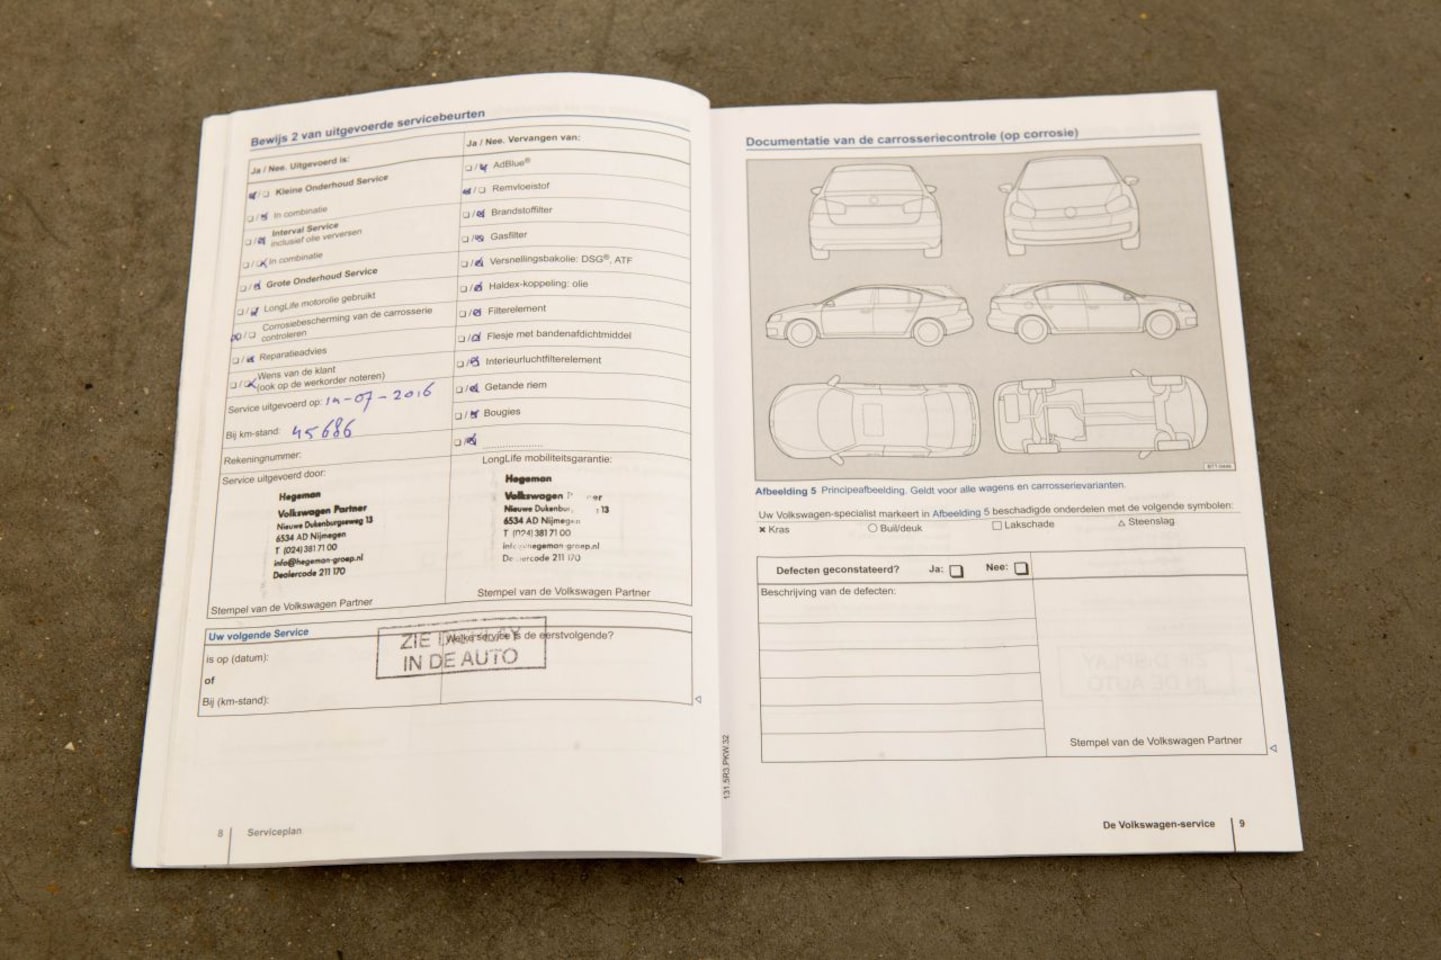 Bewijs 2 van uitgevoerde servicebeurten
Ja / Nee. Uitgevoerd is:
Kleine Onderhoud Service
In combinatie
Interval Service
inclusief olie verversen
In combinatie
Grote Onderhoud Service
LongLife motorolie gebruikt
Corrosiebescherming van de carrosserie
controleren
Reparatieadvies
Wens van de klant
(ook op de werkorder noteren)
Service uitgevoerd op: -07-2016
Bij km-stand: 45686
Rekeningnummer:
Service uitgevoerd door:
Hegeman
Volkswagen Partner
Nieuwe Dukenburgseweg 13
6534 AD Nijmegen
T (024) 381 71 00
info@hegeman-groep.nl
Dealercode 211 170
Stempel van de Volkswagen Partner
Ja / Nee. Vervangen van:
AdBlue®
Remvloeistof
Brandstoffilter
Gasfilter
Versnellingsbakolie: DSG®, ATF
Haldex-koppeling: olie
Filterelement
Flesje met bandenafdichtmiddel
Interieurluchtfilterelement
Getande riem
Bougies
LongLife mobiliteitsgarantie:
Hegeman
Volkswagen
Nieuwe 13
6534 AD
T 381 71 00
211 170
Stempel van de Volkswagen Partner
Uw volgende Service
Welke service is de eerstvolgende?
is op (datum):
of
Bij (km-stand):
ZIE DISPLAY
IN DE AUTO
8 Serviceplan
131.5R3.PKW.32
Documentatie van de carrosseriecontrole (op corrosie)
Afbeelding 5 Principeafbeelding. Geldt voor alle wagens en carrosserievarianten.
Uw Volkswagen-specialist markeert in Afbeelding 5 beschadigde onderdelen met de volgende symbolen:
× Kras ○ Buil/deuk □ Lakschade △ Steenslag
Defecten geconstateerd? Ja: Nee:
Beschrijving van de defecten:
Stempel van de Volkswagen Partner
De Volkswagen-service 9